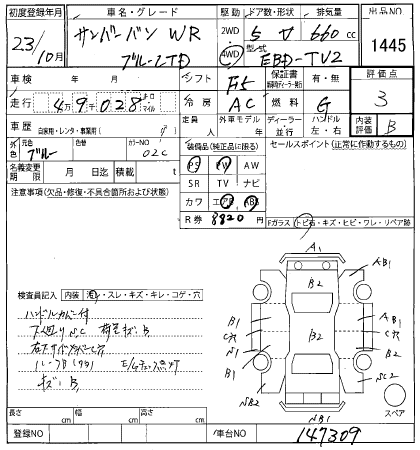 初度登録年月 車名・グレード 駆動 ドア数・形状 排気量 出品NO
23/10月 サンバーバン WR ブルーLTD 2WD 4WD 5 V 660cc 1445
型式 EBD-TV2
車検 年 月 シフト F5 保証書 有・無 評価点
走行 4万9千028 キロ マイル 冷房 AC 燃料 G 3
定員 人 外車モデル 年 ディーラー 並行 ハンドル 左・右 内装評価 B
車歴 自家用・レンタ・事業用( )
外色 元色 ブルー 色替 カラーNO 02C
装備品(純正品に限る) セールスポイント(正常に作動するもの)
PS PW AW
SR TV ナビ
カワ エアB ABS
R券 8820円
名義変更期限 月 日迄 積載 t
注意事項(欠品・修復・不具合箇所および状態)
Fガラス トビ石・キズ・ヒビ・ワレ・リペア跡
検査員記入 内装 ・スレ・キズ・キレ・コゲ・穴
ハンドルカバー付
下廻りSC 荷室キズB
キズB
A1
B2
AB1
B1
B1
C穴
B2
C穴
N1
B2
B1
SC2
NB2
NB1
スペア
長さ cm 幅 cm 高さ cm
登録NO 車台NO 147309